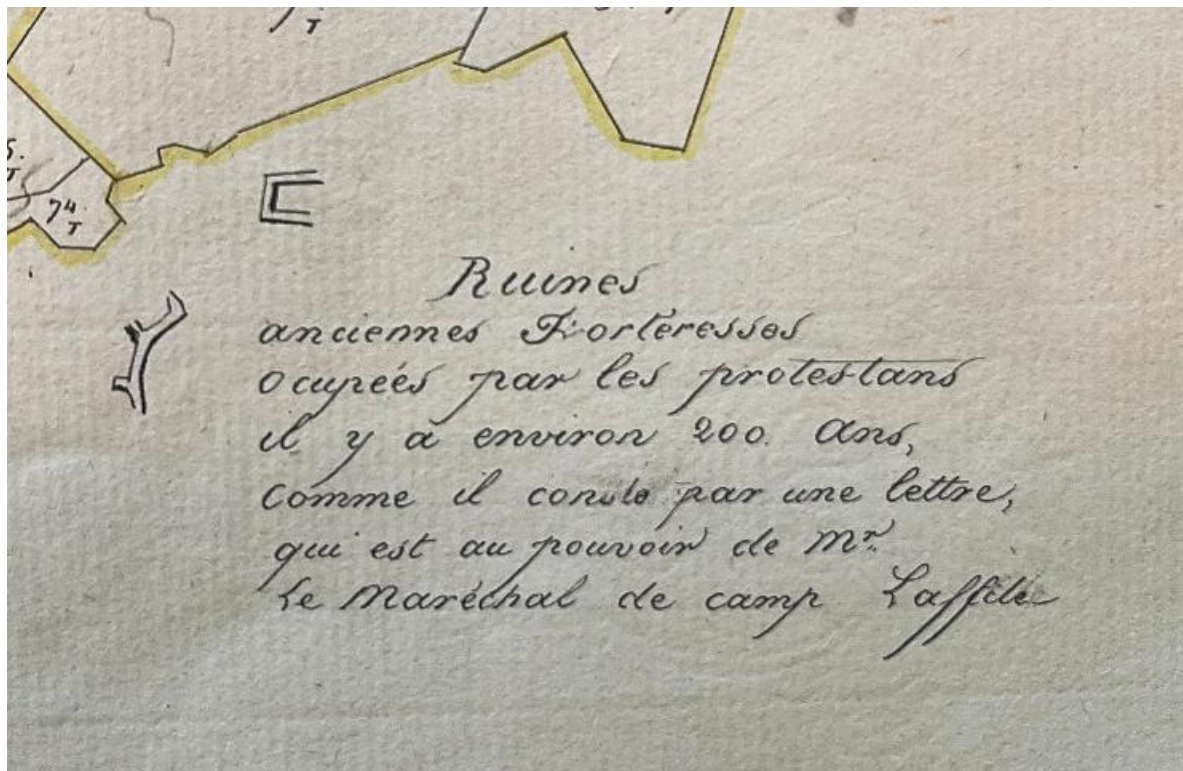 T
74.
T
Ruines
anciennes Forteresses
ocupeés par les protestans
il y a environ 200. Ans,
Comme il conste par une lettre,
qui est au pouvoir de Mr.
Le Maréchal de camp Laffite